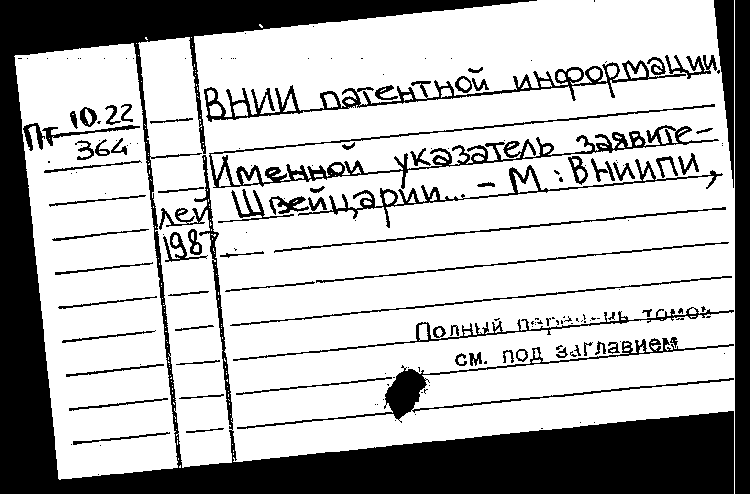 Пт 10.22
364
ВНИИ патентной информации
Именной указатель заявите-
лей Швейцарии... - М.: ВНИИПИ,
1987.
Полный перечень томов
см. под заглавием